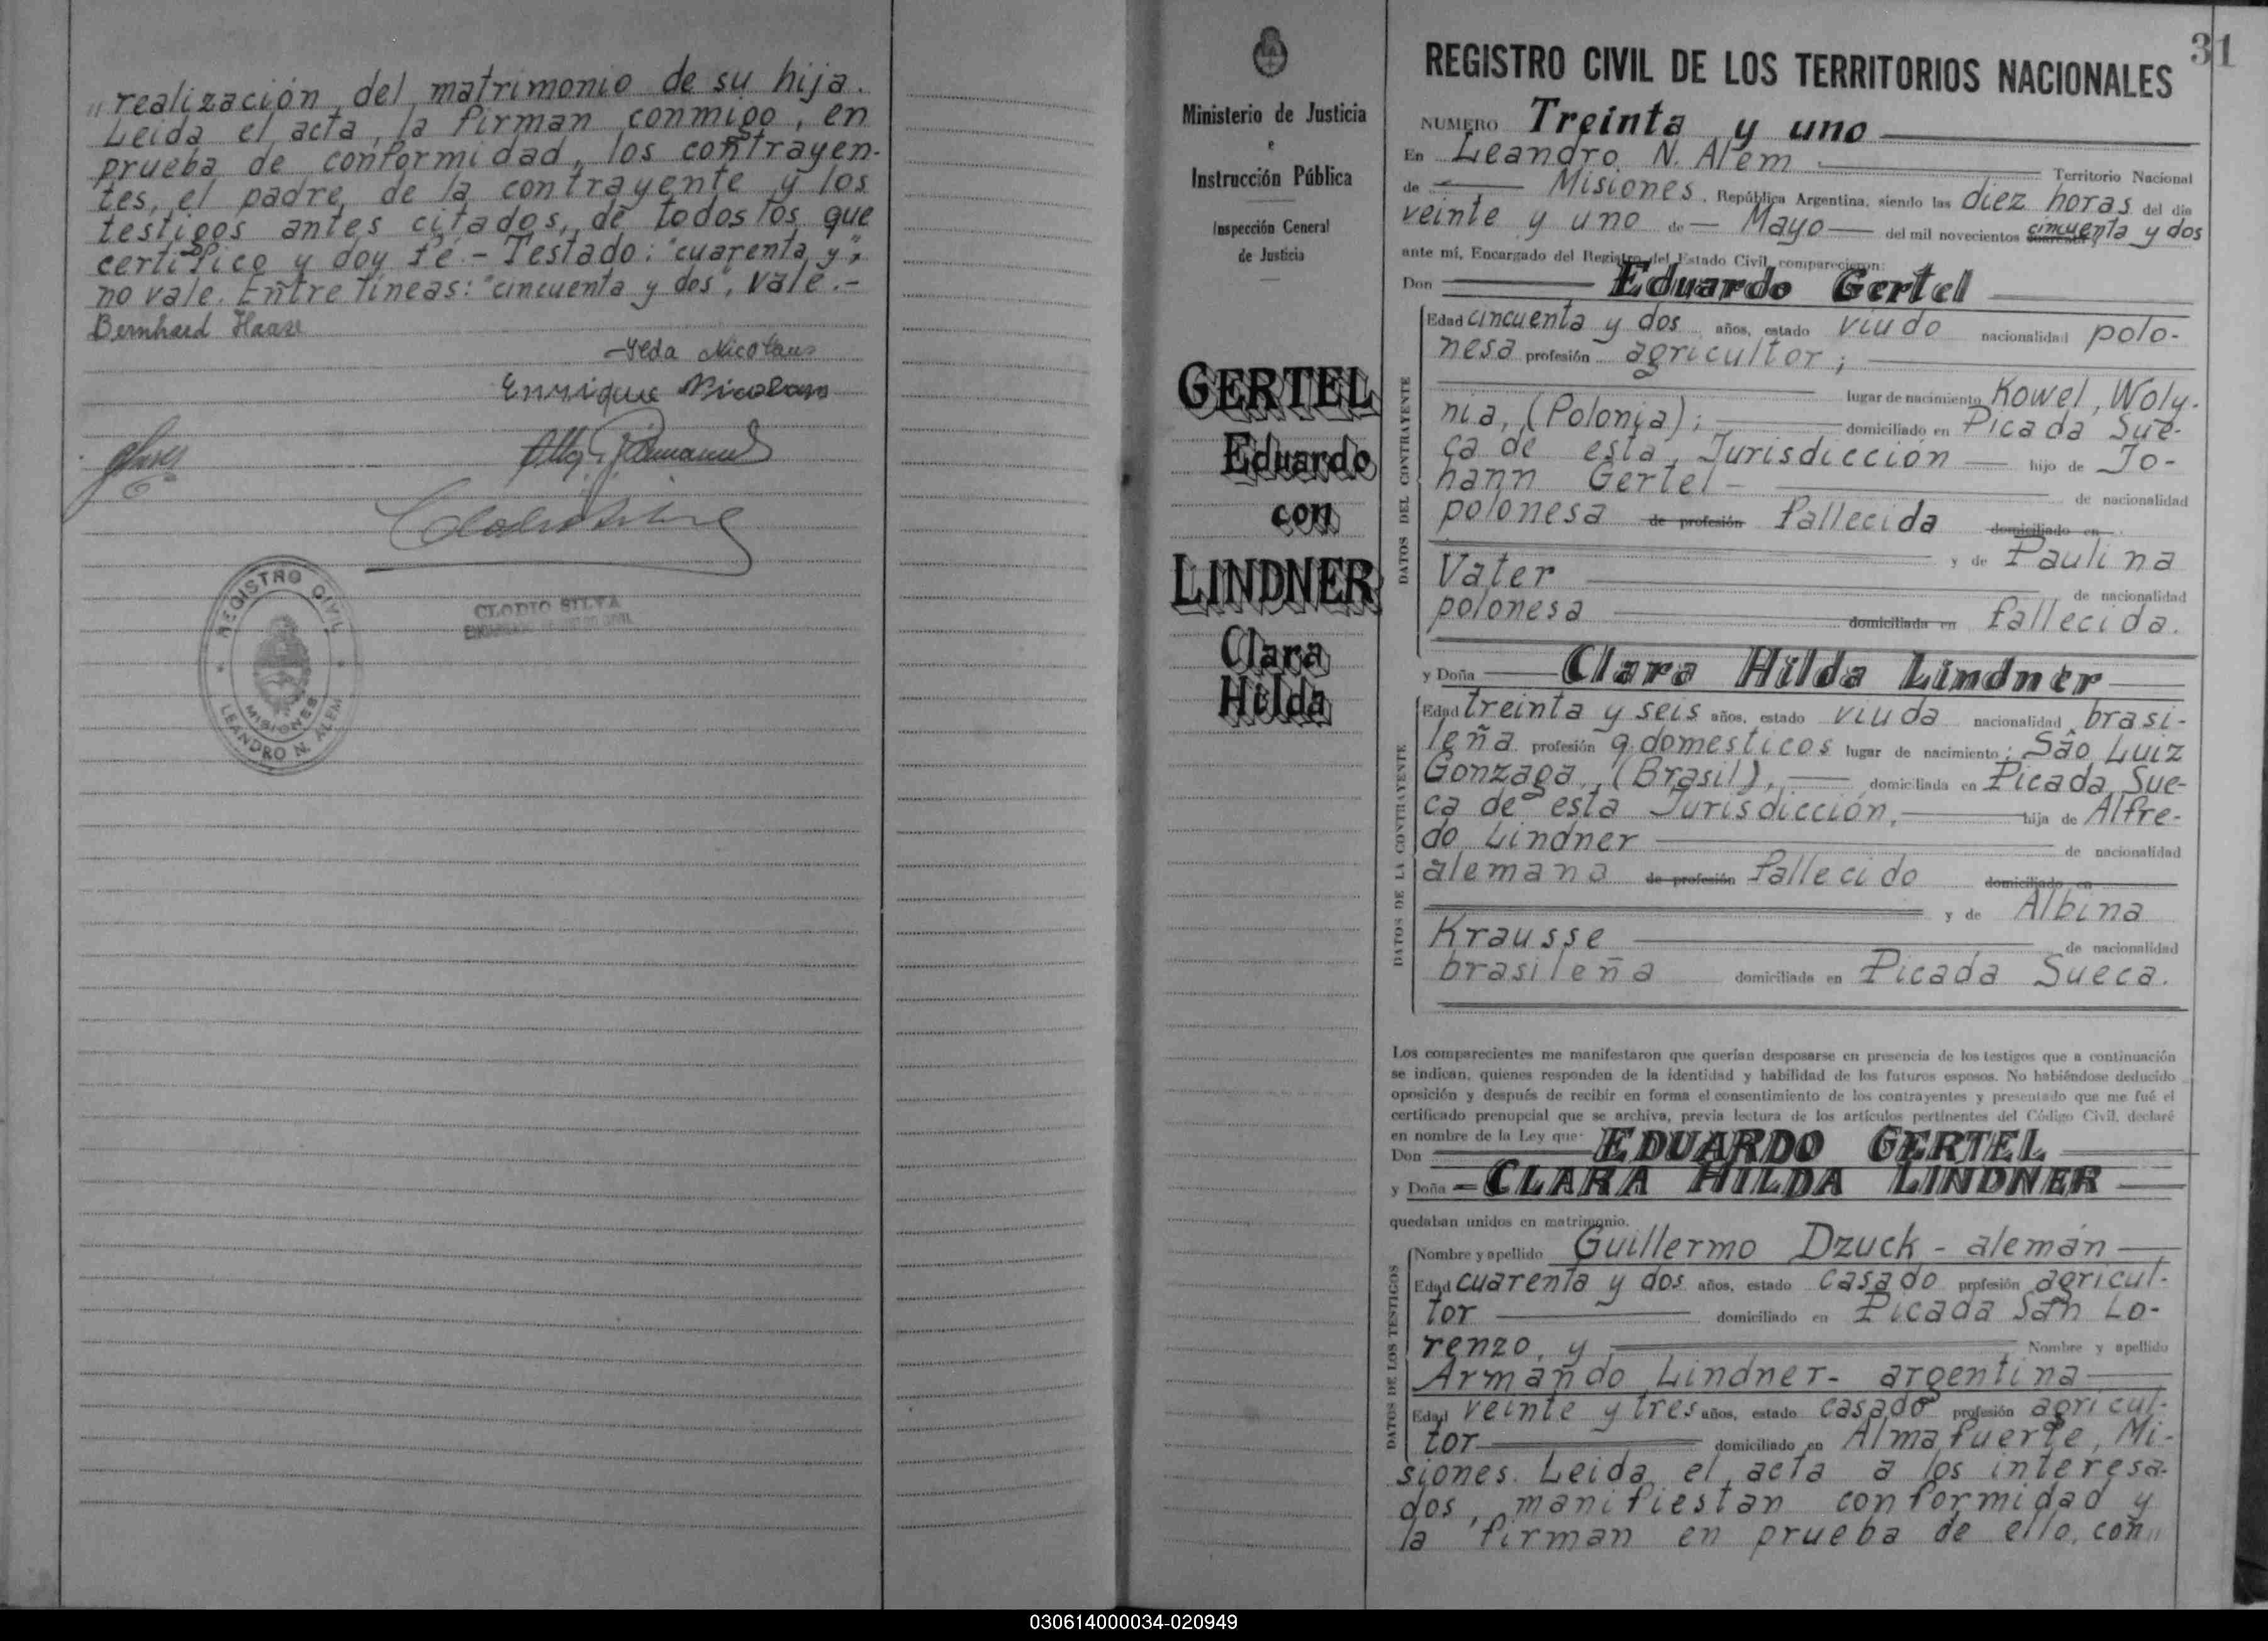 realización del matrimonio de su hija.
Leída el acta, la firman conmigo, en
prueba de conformidad, los contrayen-
tes, el padre de la contrayente y los
testigos antes citados, de todos los que
certifico y doy fé.- Testado: "cuarenta y",
no vale. Entre líneas: "cincuenta y dos", vale.-
Bernhard Haase
Ilda Nicolaus
Enrique Nicolaus
REGISTRO CIVIL
MISIONES
LEANDRO N. ALEM
CLODIO SILVA
Ministerio de Justicia
e
Instrucción Pública
Inspección General
de Justicia
GERTEL
Eduardo
con
LINDNER
Clara
Hilda
31
REGISTRO CIVIL DE LOS TERRITORIOS NACIONALES
NUMERO Treinta y uno
En Leandro N. Alem Territorio Nacional
de Misiones, República Argentina, siendo las diez horas del día
veinte y uno de Mayo del mil novecientos cincuenta y dos
ante mí, Encargado del Registro del Estado Civil, comparecieron:
Don Eduardo Gertel
DATOS DEL CONTRAYENTE
Edad cincuenta y dos años, estado viudo nacionalidad polo-
nesa profesión agricultor;
lugar de nacimiento Kowel, Woly-
nia, (Polonia); domiciliado en Picada Sue-
ca de esta Jurisdicción hijo de Jo-
hann Gertel- de nacionalidad
polonesa de profesión fallecida domiciliado en
y de Paulina
Vater de nacionalidad
polonesa domiciliada en fallecida.
y Doña Clara Hilda Lindner
DATOS DE LA CONTRAYENTE
Edad treinta y seis años, estado viuda nacionalidad brasi-
leña profesión q. domesticos lugar de nacimiento: São Luiz
Gonzaga, (Brasil), domiciliada en Picada Sue-
ca de esta Jurisdicción, hija de Alfre-
do Lindner de nacionalidad
alemana de profesión fallecido domiciliado en
y de Albina
Krausse de nacionalidad
brasileña domiciliada en Picada Sueca.
Los comparecientes me manifestaron que querían desposarse en presencia de los testigos que a continuación
se indican, quienes responden de la identidad y habilidad de los futuros esposos. No habiéndose deducido
oposición y después de recibir en forma el consentimiento de los contrayentes y presentado que me fué el
certificado prenupcial que se archiva, previa lectura de los artículos pertinentes del Código Civil, declaré
en nombre de la Ley que:
Don EDUARDO GERTEL
y Doña CLARA HILDA LINDNER
quedaban unidos en matrimonio.
DATOS DE LOS TESTIGOS
Nombre y apellido Guillermo Dzuck - alemán
Edad cuarenta y dos años, estado casado profesión agricul-
tor domiciliado en Picada San Lo-
renzo, y Nombre y apellido
Armando Lindner- argentina
Edad veinte y tres años, estado casado profesión agricul-
tor domiciliado en Almafuerte, Mi-
siones. Leida el acta a los interesa-
dos, manifiestan conformidad y
la firman en prueba de ello, con
030614000034-020949